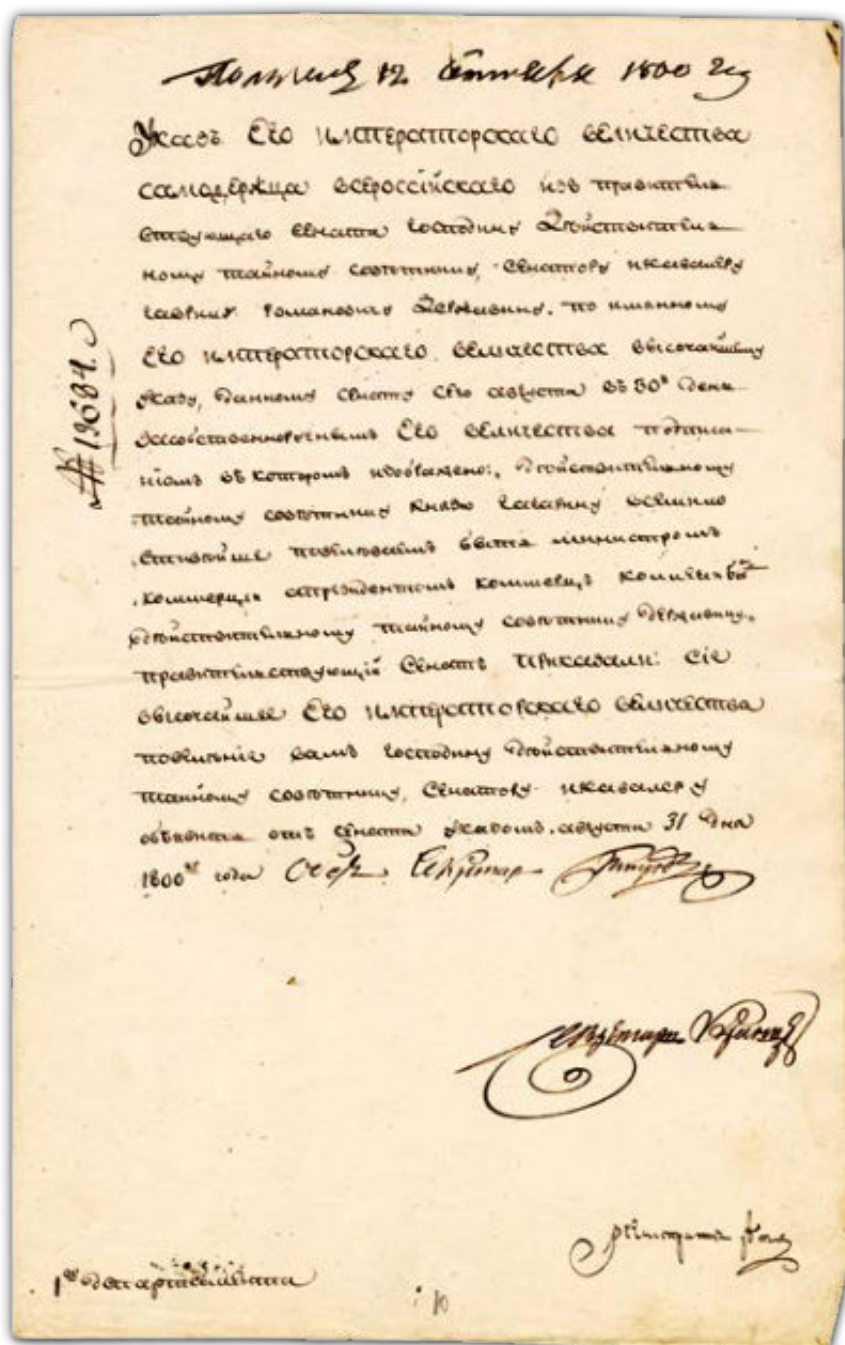 Получен 12 сентября 1800 году
Указъ Его императорскаго величества
самодержца всероссійскаго изъ правитель
ствующаго сената господину Действитель
ному тайному советнику, сенатору икавалеру
гавриле Романовичу Державину. по имянному
Его императорскаго величества высочайшему
указу, данному сенату сего августа въ 30й день
засобственноручнымъ Его величества подписа
ніемъ вкоторомъ изображено: действительному
тайному советнику князю гагарину всемило
стивейше повелеваемъ быть министромъ
коммерции апрезидентомъ коммерцъ коллегіи
действительному тайному советнику державину.
правительствующій Сенатъ приказали: сіе
высочайшее Его императорскаго величества
повеленіе вамъ господину действительному
тайному советнику, сенатору икавалеру
объявить отъ сената указомъ. августа 31 дня
1800го года Секретарь
Секретарь
Регистраторъ
№ 19684.
1го департамента
10